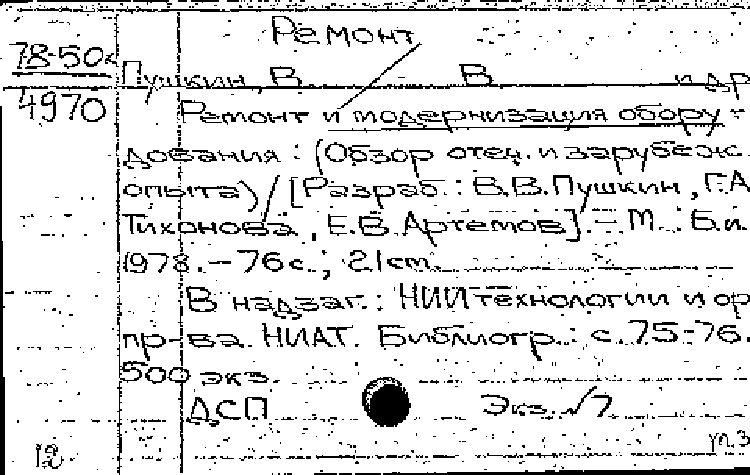 Ремонт
78-50к
4970
Пушкин, В В и др
Ремонт и модернизация обору-
дования : (Обзор отеч. и зарубеж.
опыта) / [Разраб.: В.В.Пушкин, Г.А.
Тихонова, Е.В. Артемов]. - М. : Б.и.
1978. - 76с.; 21см.
В надзаг.: НИИ технологии и ор
пр-ва. НИАТ. Библиогр.: с. 75-76.
500 экз.
ДСП Экз. √7
12 т.з